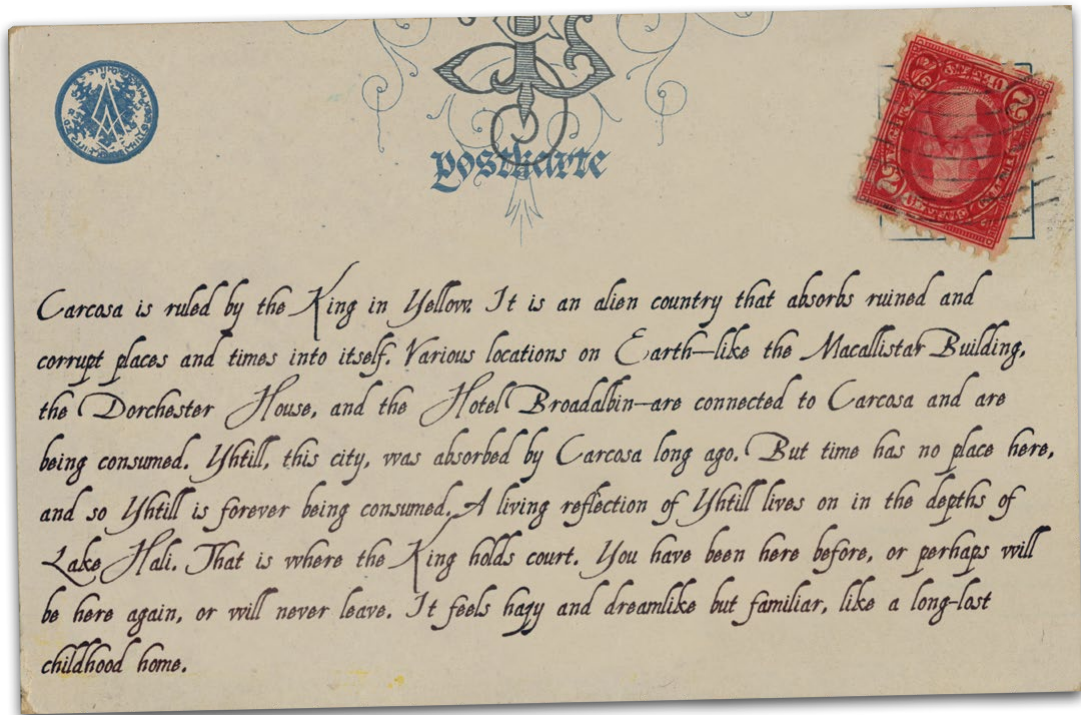 postkarte
2 CENTS 2
Carcosa is ruled by the King in Yellow. It is an alien country that absorbs ruined and
corrupt places and times into itself. Various locations on Earth—like the Macallistar Building,
the Dorchester House, and the Hotel Broadalbin—are connected to Carcosa and are
being consumed. Yhtill, this city, was absorbed by Carcosa long ago. But time has no place here,
and so Yhtill is forever being consumed. A living reflection of Yhtill lives on in the depths of
Lake Hali. That is where the King holds court. You have been here before, or perhaps will
be here again, or will never leave. It feels hazy and dreamlike but familiar, like a long-lost
childhood home.